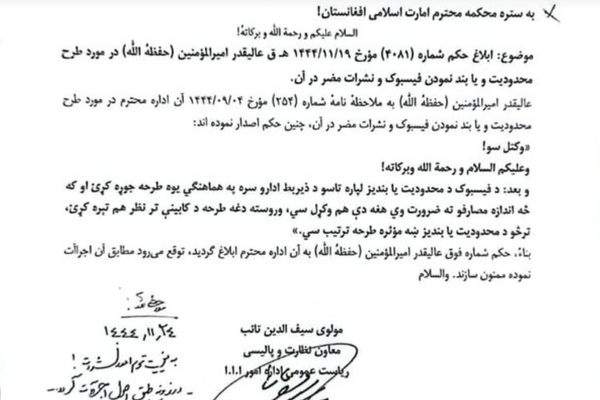 به ستره محکمه محترم امارت اسلامی افغانستان!
السلام علیکم و رحمة الله و برکاته!
موضوع: ابلاغ حکم شماره (۴۰۸۱) مؤرخ ۱۴۴۴/۱۱/۱۹ هـ ق عالیقدر امیرالمؤمنین (حفظهُ الله) در مورد طرح
محدودیت و یا بند نمودن فیسبوک و نشرات مضر در آن.
عالیقدر امیرالمؤمنین (حفظهُ الله) به ملاحظهٔ نامهٔ شماره (۲۵۴) مؤرخ ۱۴۴۴/۰۹/۰۴ آن اداره محترم در مورد طرح
محدودیت و یا بند نمودن فیسبوک و نشرات مضر در آن، چنین حکم اصدار نموده اند:
«وکتل سو!
وعلیکم السلام و رحمة الله وبرکاته!
و بعد: د فیسبوک د محدودیت یا بندیز لپاره تاسو د ذیربط ادارو سره په هماهنګي یوه طرحه جوړه کړئ او که
څه اندازه مصارفو ته ضرورت وي هغه دې هم وکړل سي، وروسته دغه طرحه د کابینې تر نظر هم تېره کړئ،
ترڅو د محدودیت یا بندیز ښه مؤثره طرحه ترتیب سي.»
بناءً، حکم شماره فوق عالیقدر امیرالمؤمنین (حفظهُ الله) به آن اداره محترم ابلاغ گردید، توقع می‌رود مطابق آن اجراآت
نموده ممنون سازند. والسلام
مولوی سیف الدین تائب
معاون نظارت و پالیسی
ریاست عمومی اداره امور ا.ا.ا
۱۴۴۴،۱۱،۲۴